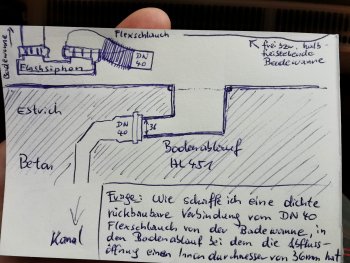 Badewanne
Flexschlauch
DN
40
Flachsiphon
freisteh. halb-
freistehende
Badewanne
Estrich
DN
40
36
Bodenablauf
HL 451
Beton
Kanal
Frage: Wie schaffe ich eine dichte
rückbaubare Verbindung vom DN 40
Flexschlauch von der Badewanne, in
den Bodenablauf bei dem die Abfluss-
öffnung einen Innendurchmesser von 36mm hat